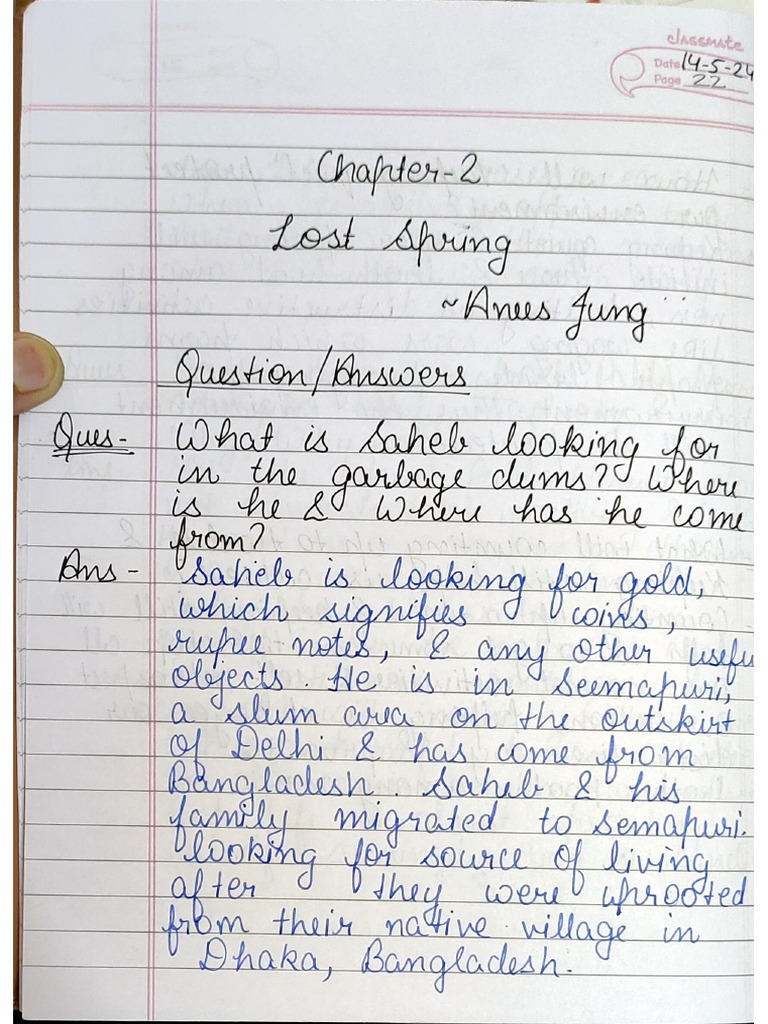 classmate
Date 14-5-24
Page 22
Chapter-2
Lost Spring
~Anees Jung
Question/Answers
Ques- What is Saheb looking for
in the garbage dums? Where
is he & Where has he come
from?
Ans- Saheb is looking for gold,
which signifies coins,
rupee notes, & any other usefu
objects. He is in Seemapuri,
a slum area on the outskirt
of Delhi & has come from
Bangladesh. Saheb & his
family migrated to Semapuri.
looking for source of living
after they were uprooted
from their native village in
Dhaka, Bangladesh.